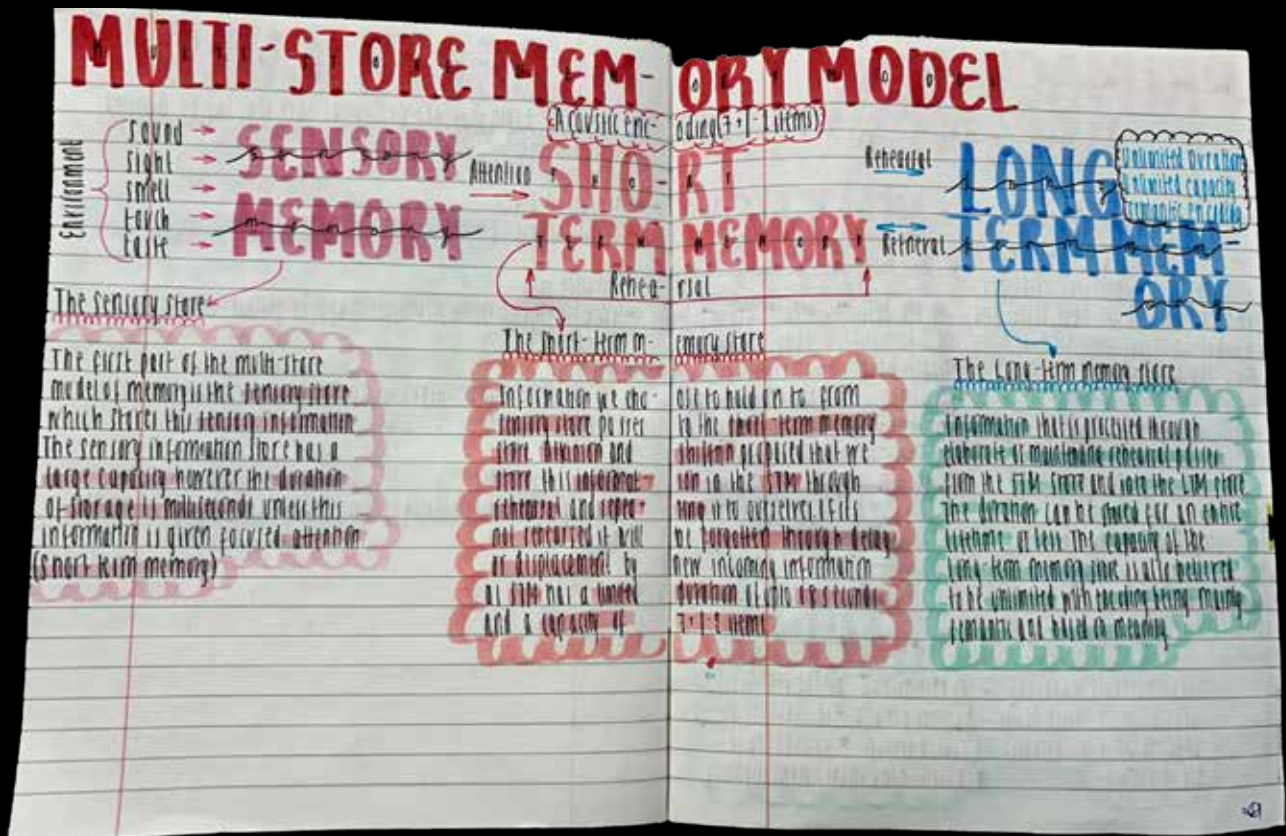 MULTI-STORE MEM-ORY MODEL
Acoustic enc-oding (7+/-2 items)
Environment
sound
sight
smell
touch
taste
SENSORY
MEMORY
Attention
SHORT
TERM MEMORY
Rehea-rsal
Rehearsal
Retrieval
LONG
TERM MEM-
ORY
Unlimited Duration
Unlimited capacity
semantic encoding
The Sensory Store
The first part of the multi-store
model of memory is the sensory store
which stores this sensory information
The sensory information store has a
large capacity however the duration
of storage is milliseconds unless this
information is given focused attention
(short term memory)
The short-term m-emory store
Information we cho-ose to hold on to from
sensory store passes to the short-term memory
store. Atkinson and shiffrin proposed that we
store this informat-ion in the STM through
rehearsal and repea-ting it to ourselves. If its
not rehearsed it will be forgotten through decay
or displacement by new incoming information
STM has a limited duration of
and a capacity of 7+/-2 items
The Long-term memory store
Information that is processed through
elaborate or maintenance rehearsal passes
from the STM store and into the LTM store
The duration can be stored for an entire
lifetime or less The capacity of the
long-term memory store is also believed
to be unlimited with encoding being mainly
semantic and based on meaning